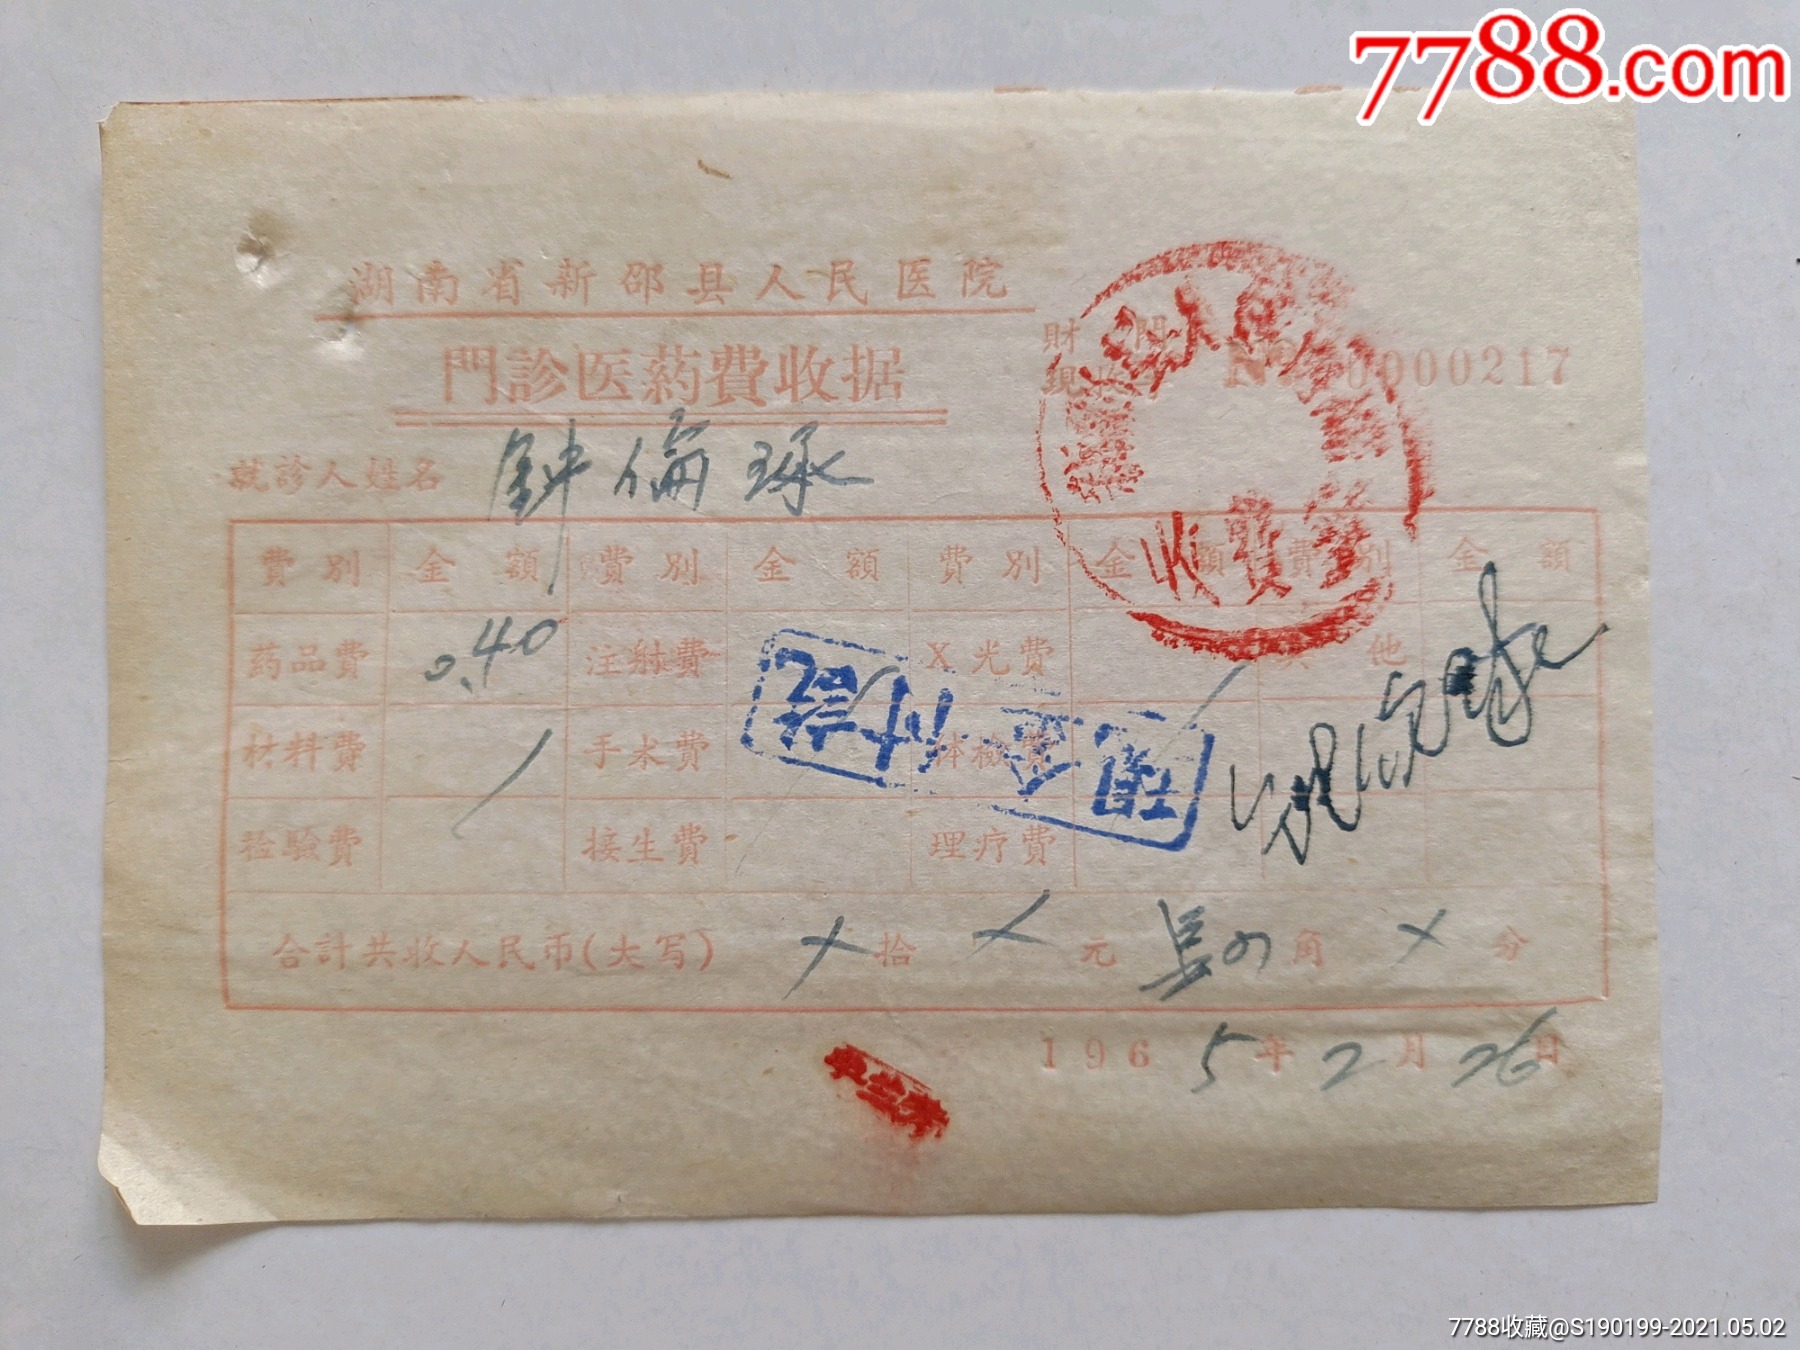 7788.com
湖南省新邵县人民医院
門診医葯費收据
財 門
現收
№ 0000217
就診人姓名 鈡倫琢
費別 金額 費別 金額 費別 金額 費別 金額
葯品費 0.40 注射費 X光費 其他
材料費 手术費 体檢費
检驗費 接生費 理疗費
現金付訖
收費
合計共收人民币(大写) ×拾 ×元 肆角 ×分
1965年2月26日
7788收藏@S190199-2021.05.02